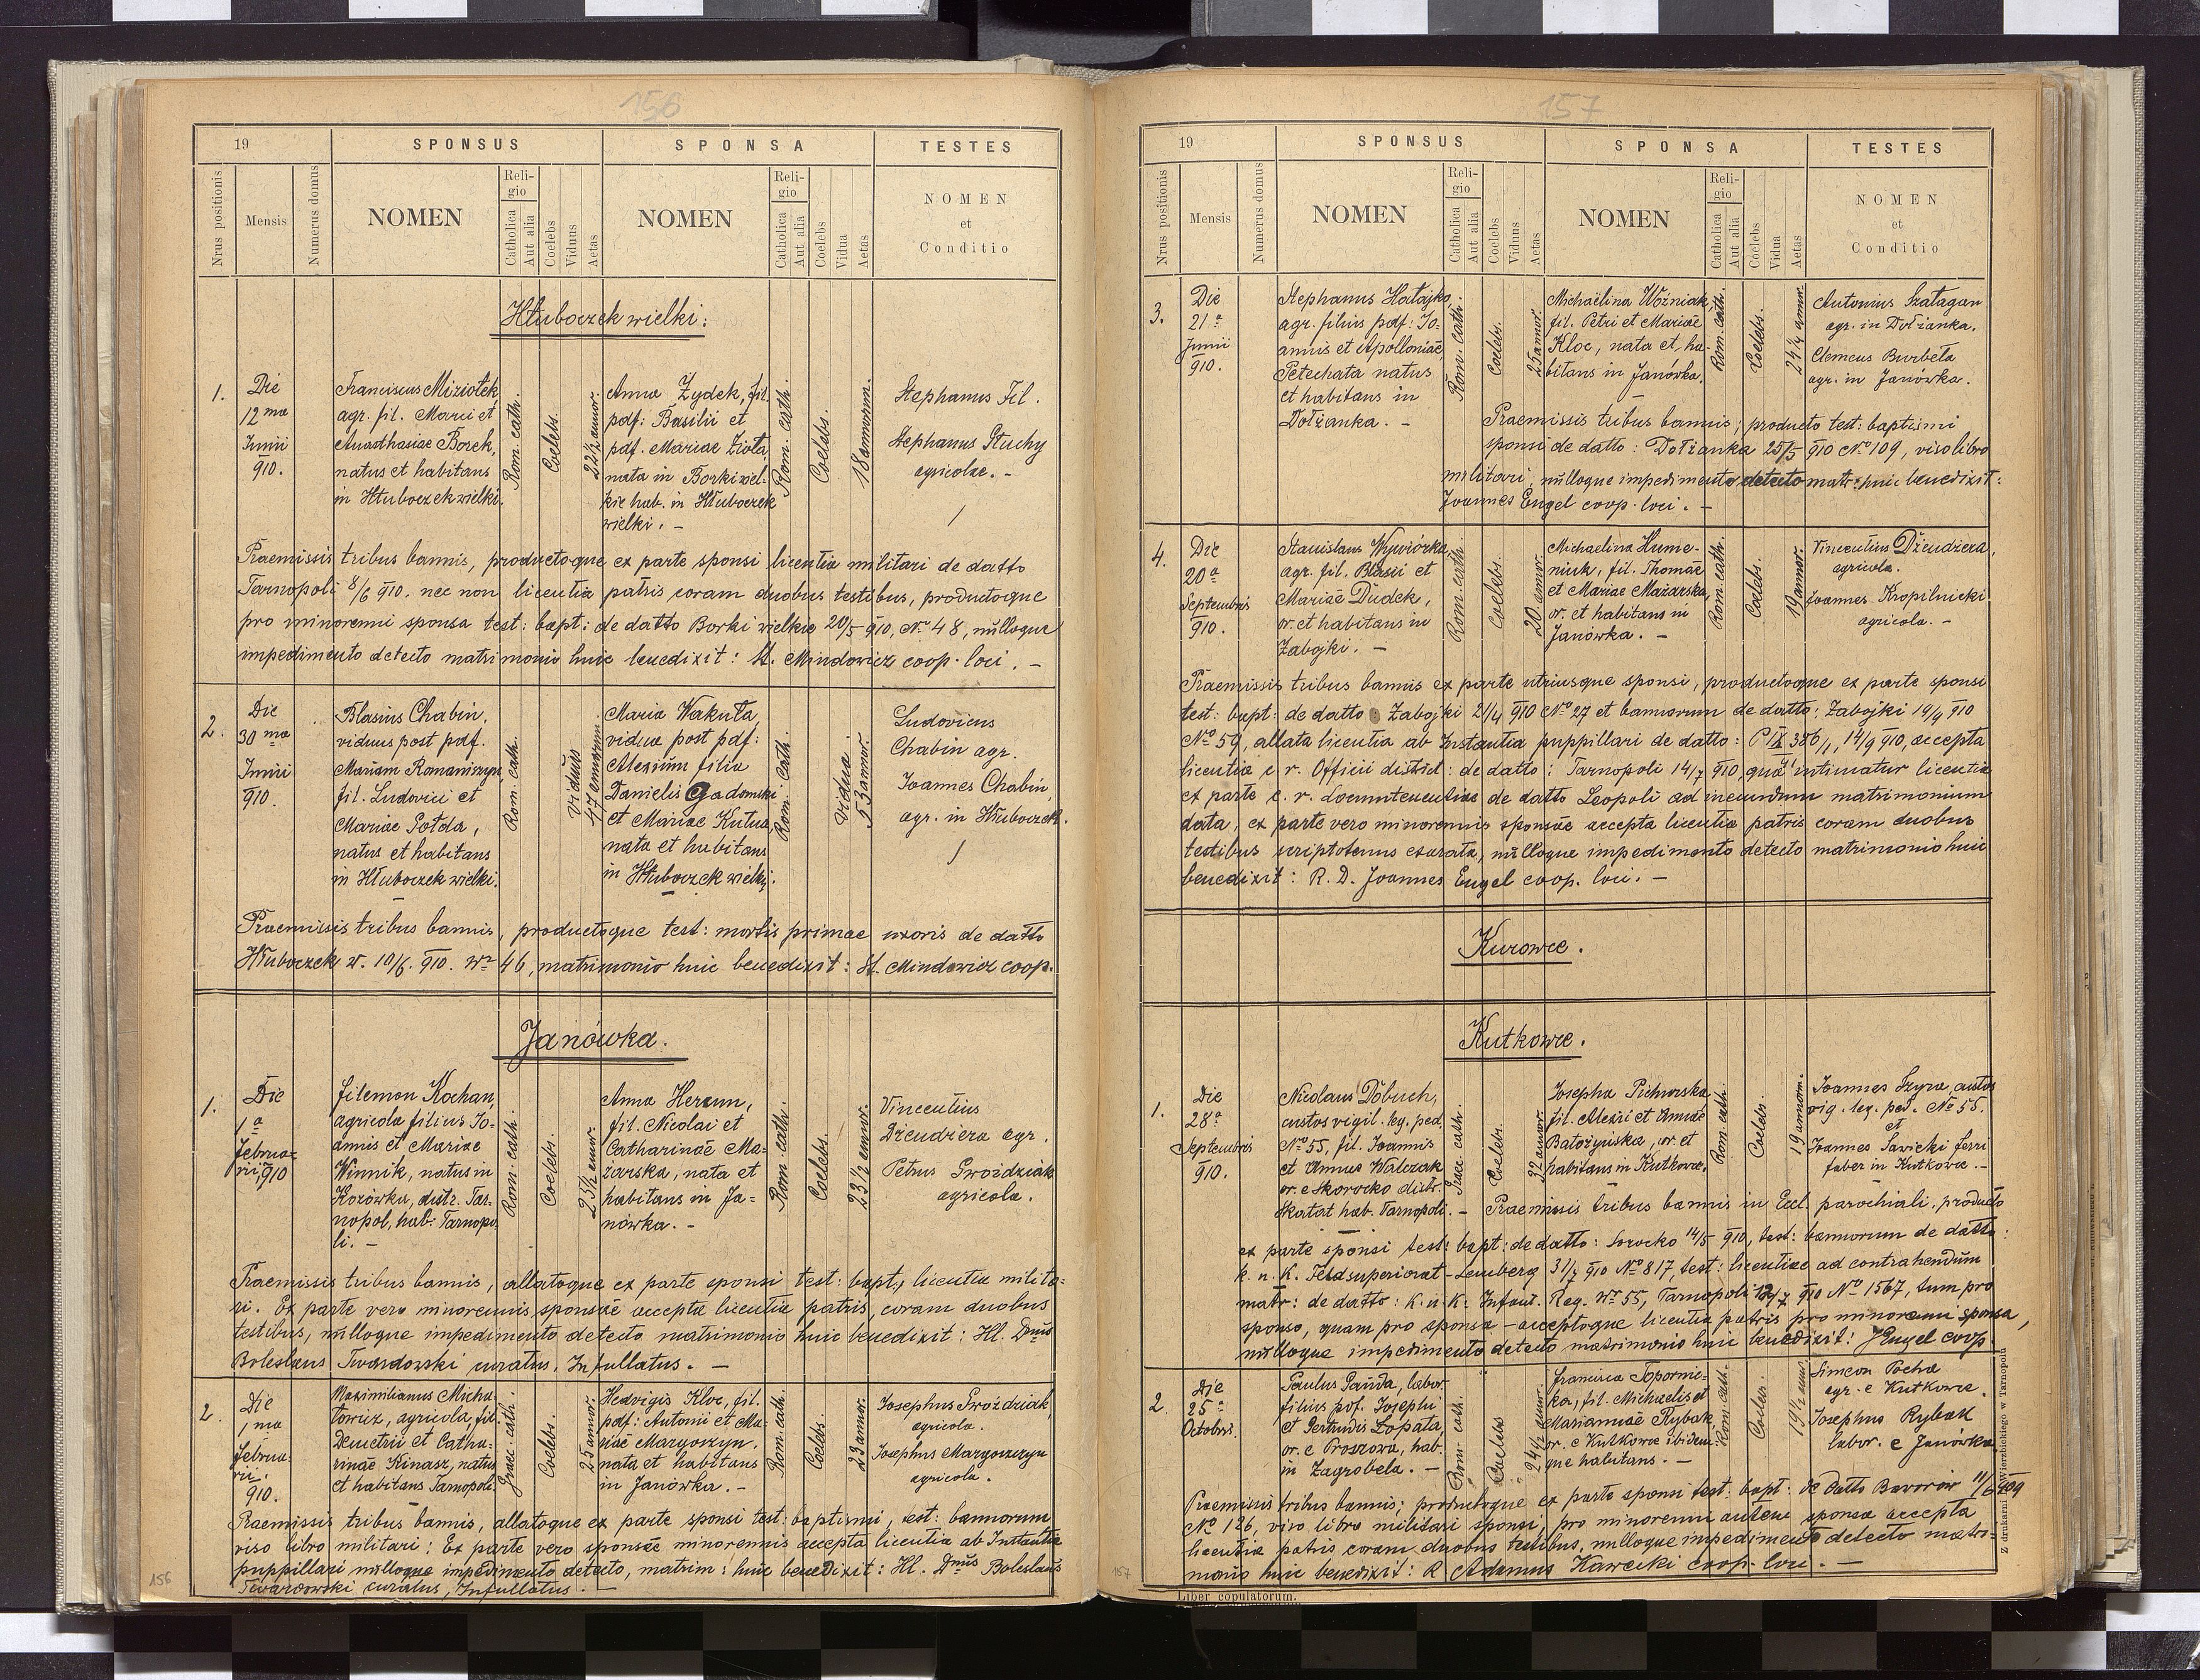 156
19
SPONSUS
SPONSA
TESTES
Nrus positionis
Mensis
Numerus domus
NOMEN
Religio
Catholica
Aut alia
Coelebs
Viduus
Aetas
NOMEN
Religio
Catholica
Aut alia
Coelebs
Vidua
Aetas
NOMEN
et
Conditio
Hłuboczek wielki:
1.
Die
12 ma
Junii
910.
Franciscus Miziołek,
agr. fil. Marci et
Anasthasiae Borek,
natus et habitans
in Hłuboczek wielki.
Rom. cath.
Coelebs.
22½ annor.
Anna Zydek, fil.
pdf: Basilii et
pdf. Mariae Zioła,
nata in Borki wiel-
kie hab. in Hłuboczek
wielki. -
Rom. cath.
Coelebs.
18 annorum.
Stephanus Fil.
Stephanus Głuchy
agricolae. -
Praemissis tribus bannis, productoque ex parte sponsi licentia militari de datto
Tarnopoli 8/6 910. nec non licentia patris coram duobus testibus, productoque
pro minorenni sponsa test: bapt: de datto Borki wielkie 20/5 910, No 48, nulloque
impedimento detecto matrimonio huic benedixit: St. Mindowicz coop. loci. -
2.
Die
30 ma
Junii
910.
Blasius Chabin,
viduus post pdf.
Mariam Romaniszyn,
fil. Ludovici et
Mariae Połda,
natus et habitans
in Hłuboczek wielki.
Rom. cath.
Viduus
47 annorum.
Maria Wakuła,
vidua post pdf:
Alexium filia
Danielis Gadomski
et Mariae Kutua,
nata et habitans
in Hłuboczek wielki.
Rom. cath.
Vidua.
53 annor.
Ludovicus
Chabin agr.
Joannes Chabin,
agr. in Hłuboczek.
Praemissis tribus bannis, productoque test: mortis primae uxoris de datto
Hłuboczek w. 10/6. 910. Nr 46, matrimonio huic benedixit: St. Mindowicz coop.
Janówka.
1.
Die
1a
Februa-
rii 910
Filemon Kochan,
agricola filius Jo-
annis et Mariae
Winnik, natus in
Kozówka, distr. Tar-
nopol, hab. Tarnopo-
li. -
Rom. cath.
Coelebs.
25½ annor.
Anna Herzun,
fil. Nicolai et
Catharinae Ma-
żarska, nata et
habitans in Ja-
nówka. -
Rom. cath.
Coelebs.
23½ annor.
Vincentius
Dżendżera agr.
Petrus Gwoździak
agricola.
Praemissis tribus bannis, allatoque ex parte sponsi test: bapt., licentia milita-
ri. Ex parte vero minorennis sponsae accepta licentia patris, coram duobus
testibus, nulloque impedimento detecto matrimonio huic benedixit: Hl. Dnus
Boleslaus Twardowski curatus, Infullatus. -
2.
Die
1 ma
Februa-
rii.
910.
Maximilianus Micha-
łowicz, agricola, fil.
Demetrii et Catha-
rinae Kinasz, natus
et habitans Tarnopoli.
Graec. cath.
Coelebs.
25 annor.
Hedvigis Kloc, fil.
pdf: Antonii et Ma-
riae Margoszyn,
nata et habitans
in Janówka. -
Rom. cath.
Coelebs.
23 annor.
Josephus Gwoździak,
agricola.
Josephus Margoszczyn
agricola.
Praemissis tribus bannis, allatoque ex parte sponsi test: baptismi, test: bannorum
viso libro militari: Ex parte vero sponsae minorennis accepta licentia ab Instantia
puppillari nulloque impedimento detecto, matrim: huic benedixit: Hl. Dnus Boleslaus
Twardowski curatus, Infullatus. -
156
157
19
SPONSUS
SPONSA
TESTES
Nrus positionis
Mensis
Numerus domus
NOMEN
Religio
Catholica
Aut alia
Coelebs
Viduus
Aetas
NOMEN
Religio
Catholica
Aut alia
Coelebs
Vidua
Aetas
NOMEN
et
Conditio
3.
Die
21a
Junii
910.
Stephanus Hatajko,
agr. filius pdf: Jo-
annis et Apolloniae
Petechata natus
et habitans in
Dołżanka. -
Rom. cath.
Coelebs.
25 annor.
Michaëlina Woźniak,
fil. Petri et Mariae
Kloc, nata et ha-
bitans in Janówka.
Rom. cath.
Coelebs.
24¼ annor.
Antonius Szatagan
agr. in Dołżanka.
Clemens Burbeła
agr. in Janówka.
Praemissis tribus bannis; producto test: baptismi
sponsi de datto: Dołżanka 25/5 910 No 109, viso libro
militari; nulloque impedimento detecto matr: huic benedixit:
Joannes Engel coop. loci. -
4.
Die
20a
Septembris
910.
Stanislaus Wywiórka,
agr. fil. Blasii et
Mariae Dudek,
or. et habitans in
Zabojki. -
Rom. cath.
Coelebs.
20 annor.
Michaelina Hume-
niuk, fil. Thomae
et Mariae Mażarska,
or. et habitans in
Janówka. -
Rom. cath.
Coelebs.
19 annor.
Vincentius Dżendżera,
agricola.
Joannes Kropilnicki
agricola. -
Praemissis tribus bannis ex parte utriusque sponsi, productoque ex parte sponsi
test: bapt: de datto Zabojki 2/4 910 No 27 et bannorum de datto: Zabojki 19/9 910
No 59, allata licentia ab Instantia puppillari de datto: P IX 386/1, 14/9 910, accepta
licentia c. r. Officii district: de datto: Tarnopoli 14/7 910, qua intimatur licentia
ex parte c. r. Locumtenentiae de datto Leopoli ad ineundum matrimonium
data, ex parte vero minorennis sponsae accepta licentia patris coram duobus
testibus scriptotenus exarata, nulloque impedimento detecto matrimonio huic
benedixit: R. D. Joannes Engel coop. loci. -
Kurowce.
Kutkowce.
1.
Die
28a
Septembris
910.
Nicolaus Dobuch,
custos vigil. leg. ped.
No 55, fil. Joannis
et Annae Walczak
or. e Skorocko distr.
Skałat hab. Tarnopoli. -
Graec. cath.
Coelebs.
32 annor.
Josepha Pichurska,
fil. Alexii et Annae
Batożyńska, or. et
habitans in Kutkowce.
Rom. cath.
Coelebs.
19 annorum.
Joannes Szyra, custos
vig. leg. ped. No 55.
et
Joannes Sawicki ferri
faber in Kutkowce. -
Praemissis tribus bannis in Eccl. parochiali, producto
ex parte sponsi test: bapt: de datto: Sorocko 14/5 910, test: bannorum de datto:
K. u. K. Feldsuperiorat - Lemberg 31/7 910 No 817, test: licentiae ad contrahendum
matr: de datto: K. u. K. Infant. Reg. Nr 55, Tarnopoli 12/7 910 No 1567, tum pro
sponso, quam pro sponsa - acceptoque licentia patris pro minorenni sponsa,
nulloque impedimento detecto matrimonio huic benedixit: J Engel coop.
2
Die
25a
Octobris.
Paulus Panda, labor.
filius pdf. Josephi
et Gertrudis Łopata,
or. e Proszowa, hab.
in Zagrobela. -
Rom. cath.
Coelebs
24½ annor.
Francisca Topornic-
ka, fil. Michaelis et
Mariannae Rybak,
or. e Kutkowce ibidem-
que habitans. -
Rom. cath.
Coelebs.
19½ ann.
Simeon Pocha
agr. e Kutkowce.
Josephus Rybak
labor. e Janówka.
Praemissis tribus bannis; productoque ex parte sponsi test: bapt: de datto Baworów 11/6 909
No 126, viso libro militari sponsi, pro minorenni autem sponsa accepta
licentia patris coram duobus testibus, nulloque impedimento detecto matri-
monio huic benedixit: R Adamus Kawecki coop. loci. -
Liber copulatorum.
Z drukarni Wierzbickiego w Tarnopolu
157